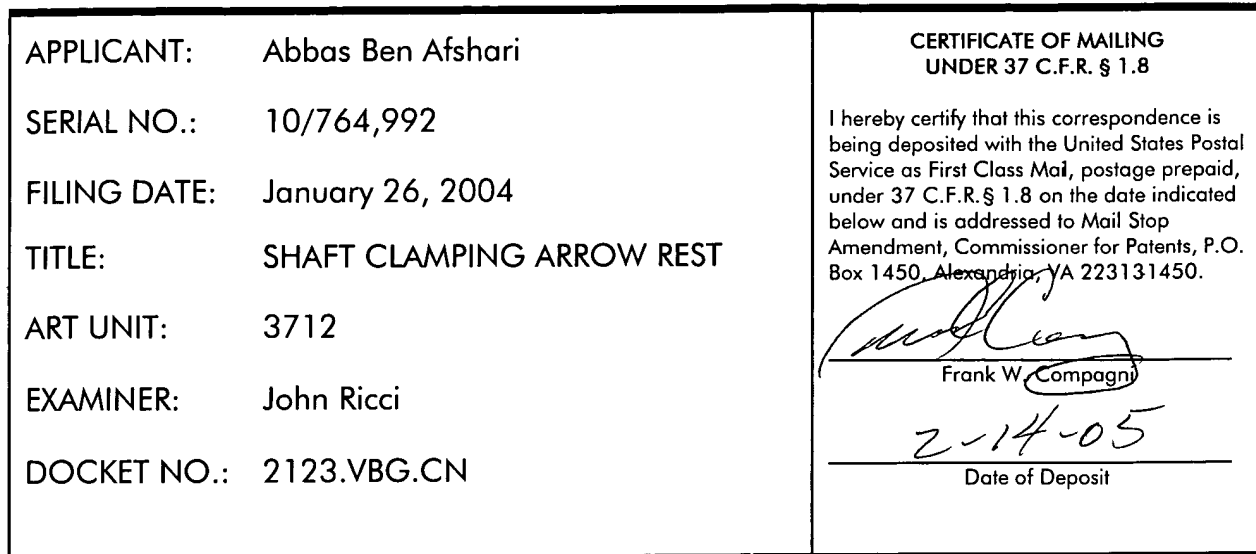 APPLICANT: Abbas Ben Afshari
SERIAL NO.: 10/764,992
FILING DATE: January 26, 2004
TITLE: SHAFT CLAMPING ARROW REST
ART UNIT: 3712
EXAMINER: John Ricci
DOCKET NO.: 2123.VBG.CN
CERTIFICATE OF MAILING
UNDER 37 C.F.R. § 1.8
I hereby certify that this correspondence is
being deposited with the United States Postal
Service as First Class Mail, postage prepaid,
under 37 C.F.R.§ 1.8 on the date indicated
below and is addressed to Mail Stop
Amendment, Commissioner for Patents, P.O.
Box 1450, Alexandria, VA 223131450.
Frank W. Compagni
2-14-05
Date of Deposit